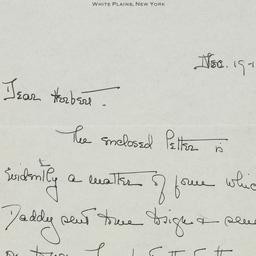 WHITE PLAINS, NEW YORK
Dec. 19-1
Dear Herbert.
The enclosed letter is
Evidently a matter of form whic
Daddy sent to me to sign & sen